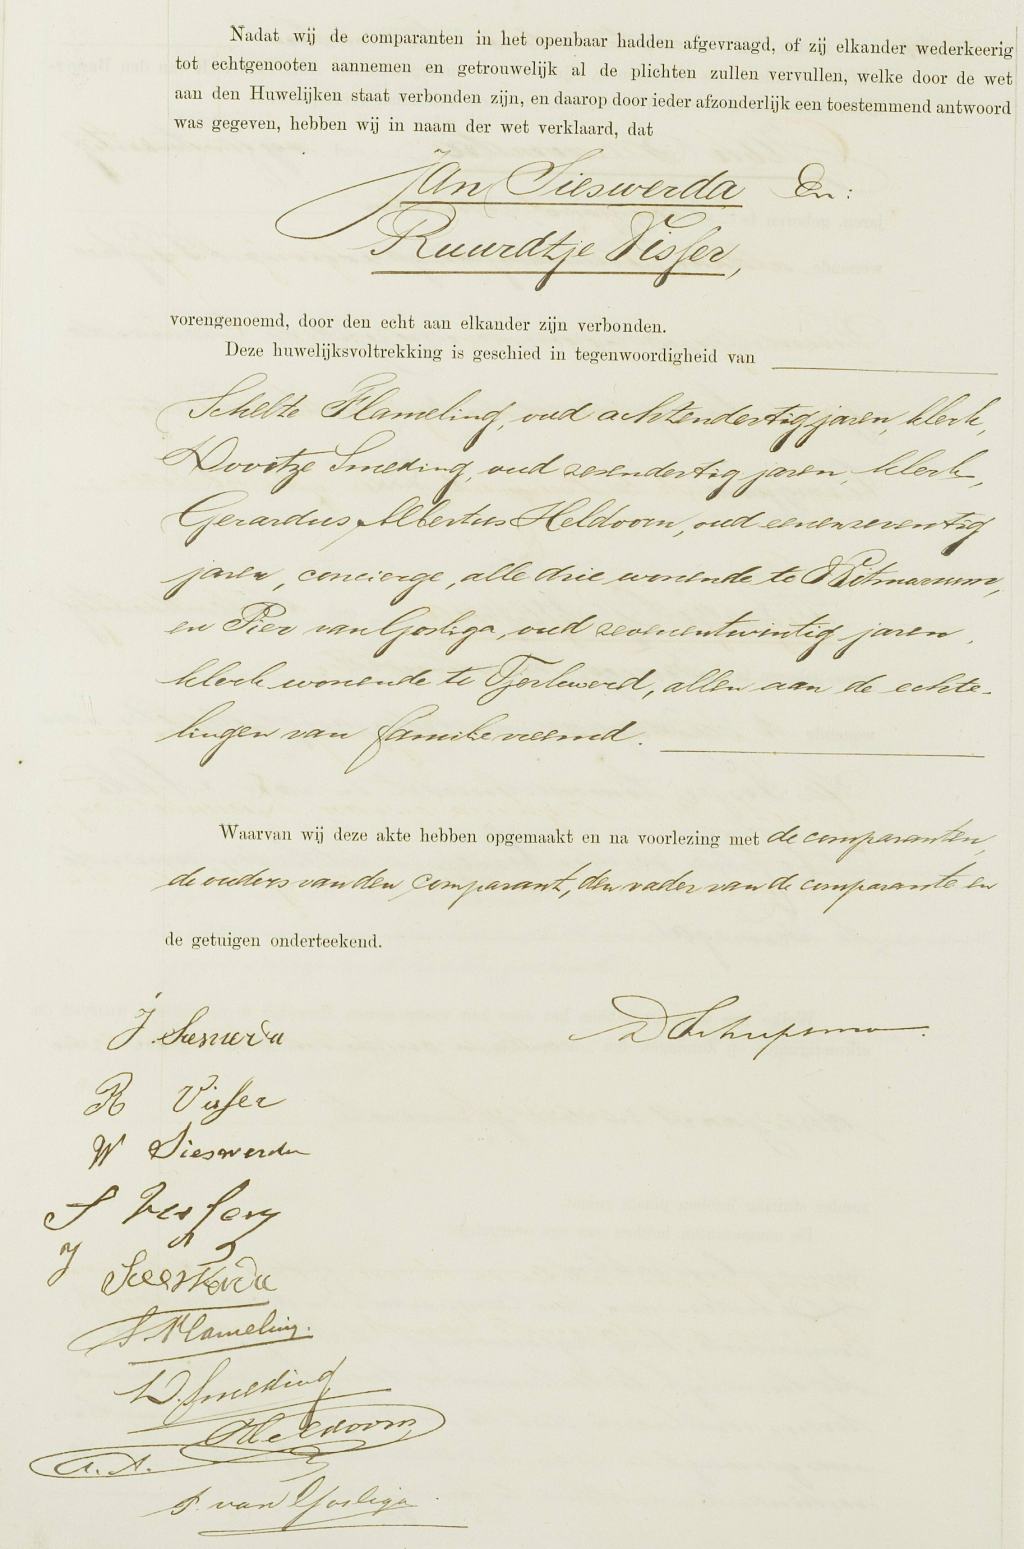 Nadat wij de comparanten in het openbaar hadden afgevraagd, of zij elkander wederkeerig
tot echtgenooten aannemen en getrouwelijk al de plichten zullen vervullen, welke door de wet
aan den Huwelijken staat verbonden zijn, en daarop door ieder afzonderlijk een toestemmend antwoord
was gegeven, hebben wij in naam der wet verklaard, dat
Jan Sieswerda En:
Ruurdtje Visser,
vorengenoemd, door den echt aan elkander zijn verbonden.
Deze huwelijksvoltrekking is geschied in tegenwoordigheid van
Schelte Flameling, oud achtendertig jaren, klerk,
Doeitze Smeding, oud zesendertig jaren, klerk,
Gerardus Albertus Heldoorn, oud eenenzeventig
jaren, concierge, alle drie wonende te Witmarsum,
en Pier van Gosliga, oud zevenentwintig jaren,
klerk wonende te Tjerkwerd, allen aan de echte-
lingen van familie vreemd.
Waarvan wij deze akte hebben opgemaakt en na voorlezing met de comparanten,
de ouders van den comparant, den vader van de comparante en
de getuigen onderteekend.
J. Sieswerda
R Visser
W Sieswerda
S Visser
J Sieswerda
S. Flameling.
D. Smeding
Heldoorn
P. van Gosliga